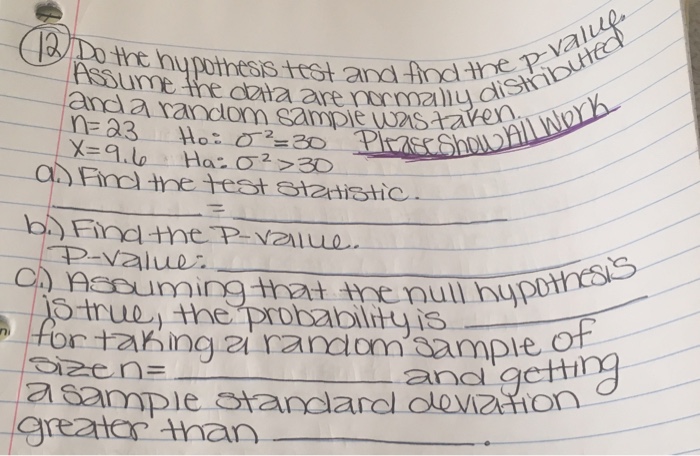 12 Do the hypothesis test and find the p-value.
Assume the data are normally distributed
and a random sample was taken.
n=23 Ho: σ²=30 Please Show All Work
x=9.6 Ha: σ²>30
a.) Find the test statistic.
=
b.) Find the P-value.
P-value:
c.) Assuming that the null hypothesis
is true, the probability is
for taking a random sample of
size n= and getting
a sample standard deviation
greater than .